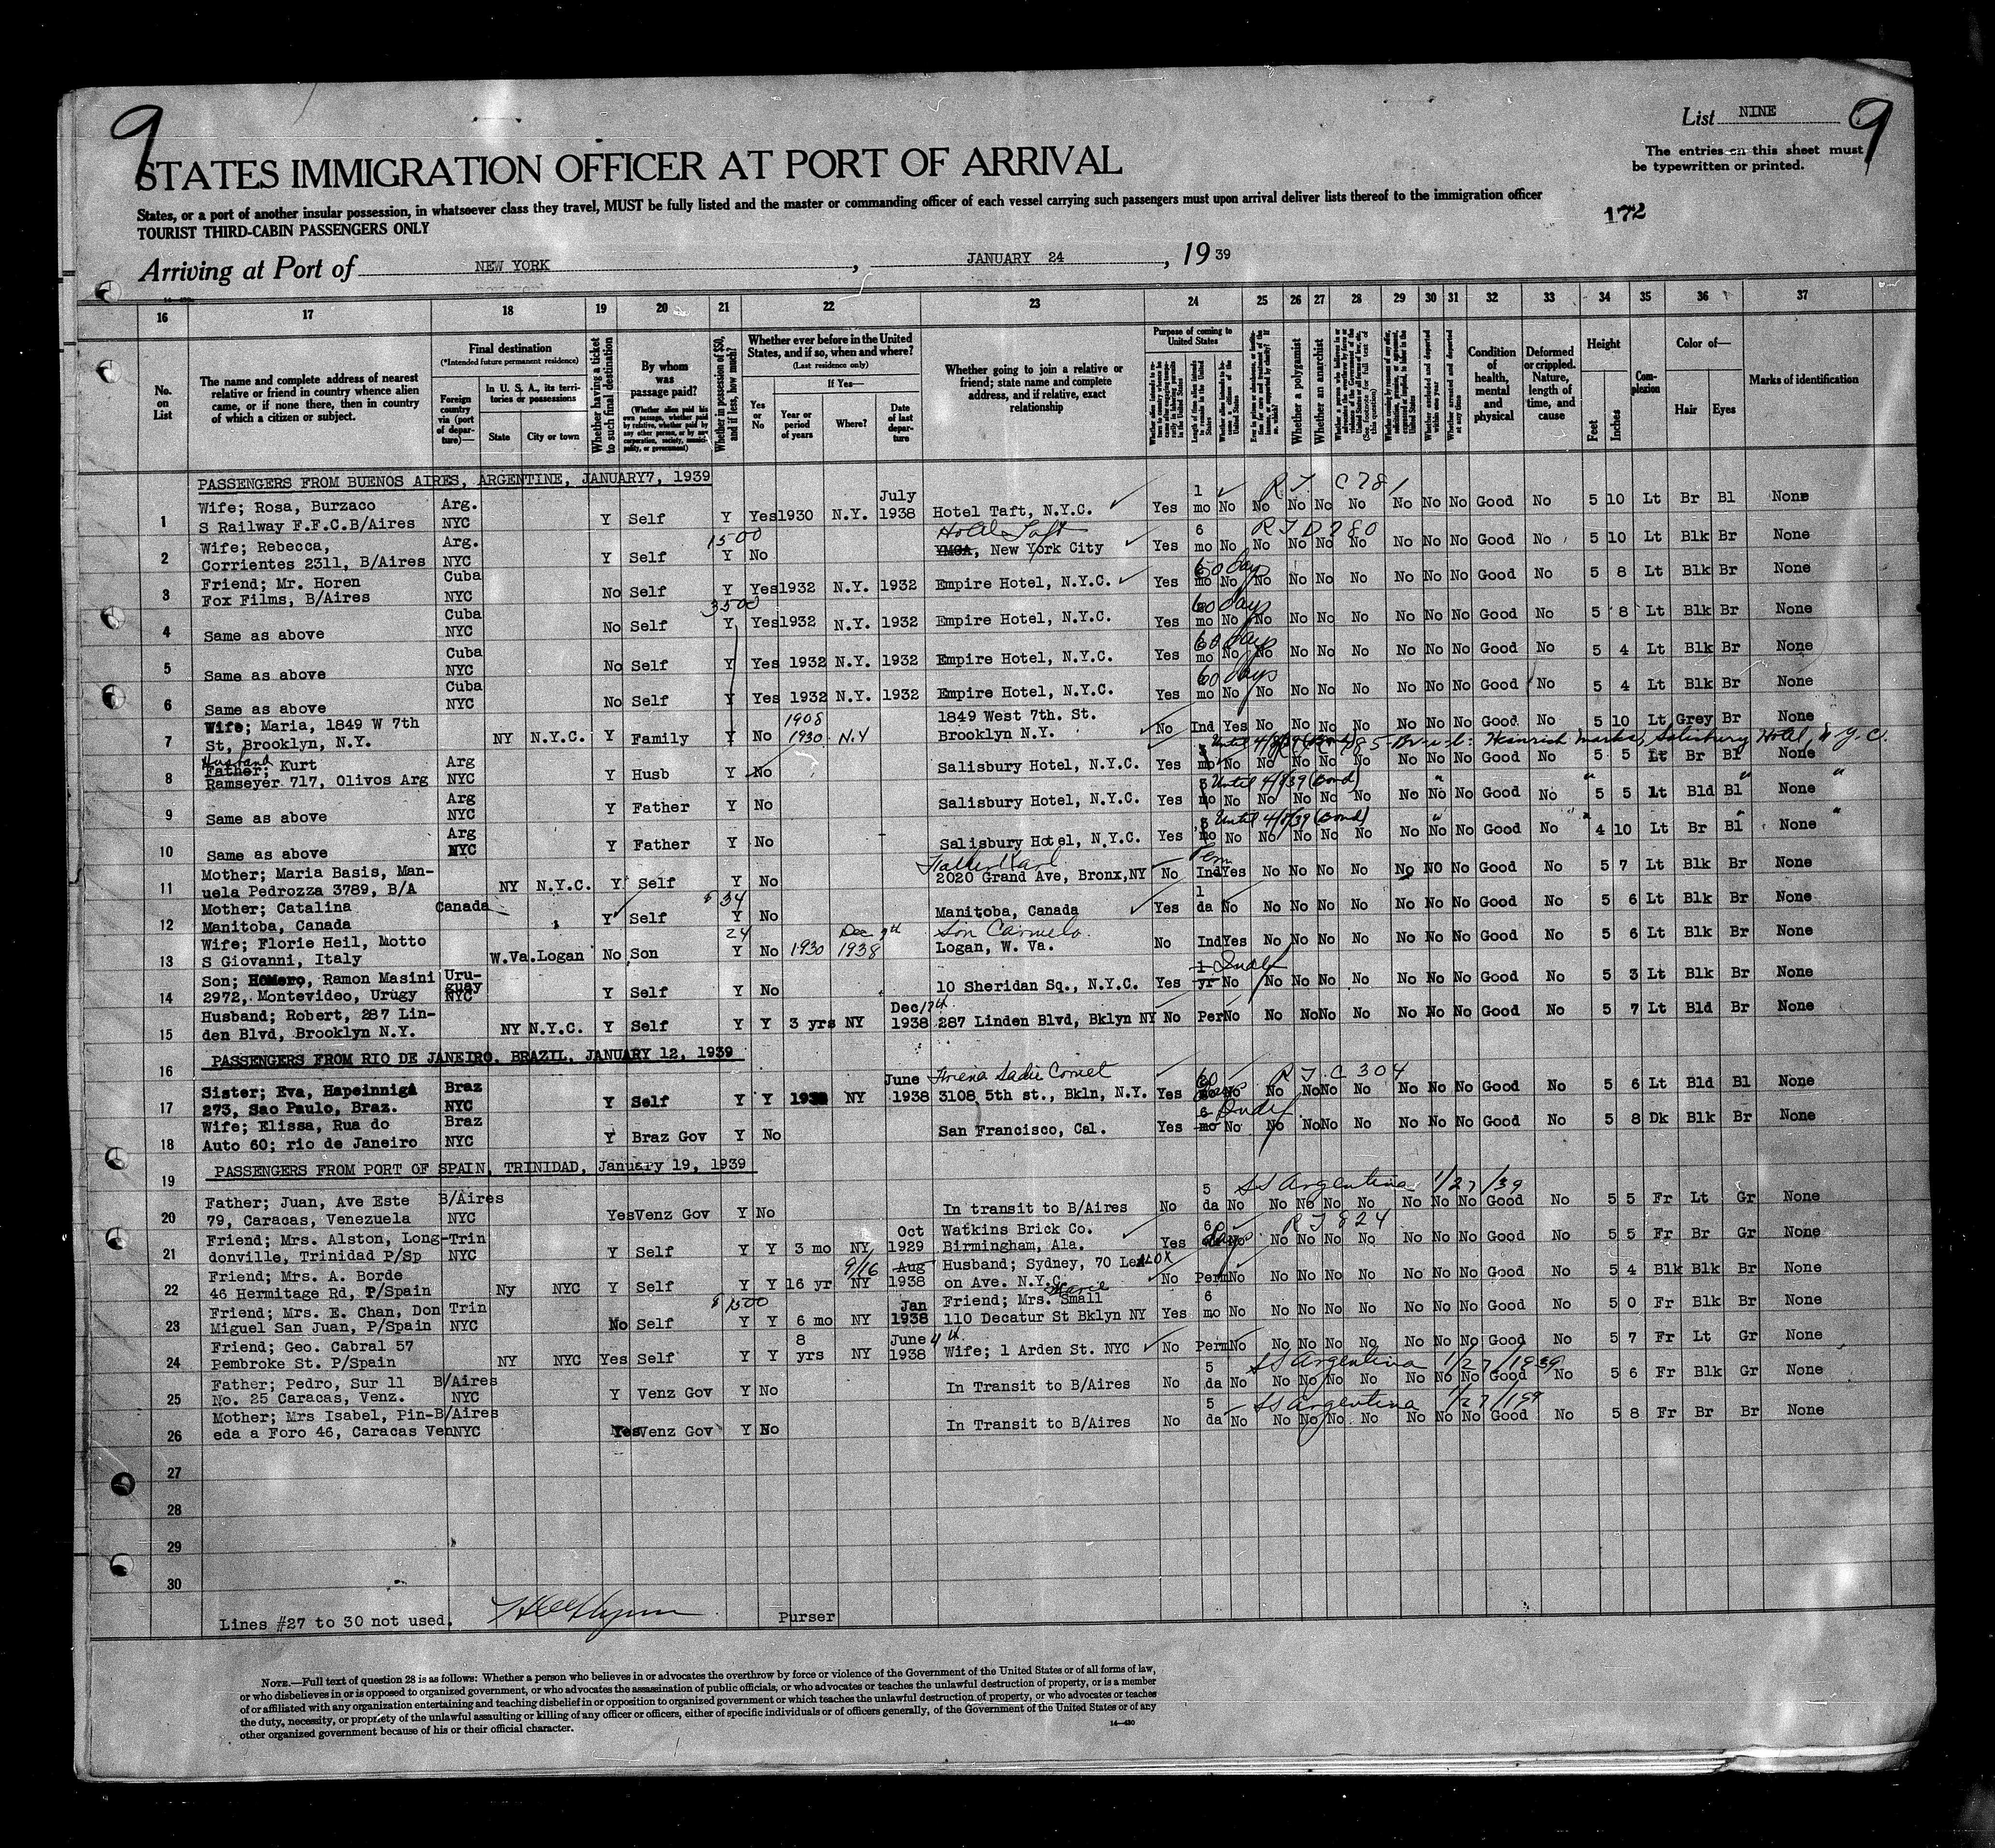 9
List NINE 9
The entries on this sheet must
be typewritten or printed.
STATES IMMIGRATION OFFICER AT PORT OF ARRIVAL
States, or a port of another insular possession, in whatsoever class they travel, MUST be fully listed and the master or commanding officer of each vessel carrying such passengers must upon arrival deliver lists thereof to the immigration officer
TOURIST THIRD-CABIN PASSENGERS ONLY
172
Arriving at Port of NEW YORK, JANUARY 24, 19 39
16 17 18 19 20 21 22 23 24 25 26 27 28 29 30 31 32 33 34 35 36 37
No. on List
The name and complete address of nearest
relative or friend in country whence alien
came, or if none there, then in country
of which a citizen or subject.
Final destination
(*Intended future permanent residence)
Foreign country via (port of departure)—
In U. S. A., its territories or possessions
State
City or town
Whether having a ticket to such final destination
By whom was passage paid?
(Whether alien paid his own passage, whether paid by relative, whether paid by any other person, or by any corporation, society, municipality, or government)
Whether in possession of $50, and if less, how much?
Whether ever before in the United States, and if so, when and where?
(Last residence only)
If Yes—
Yes or No
Year or period of years
Where?
Date of last departure
Whether going to join a relative or
friend; state name and complete
address, and if relative, exact
relationship
Purpose of coming to United States
Whether a polygamist
Whether an anarchist
Condition of health, mental and physical
Deformed or crippled. Nature, length of time, and cause
Height
Feet
Inches
Complexion
Color of—
Hair
Eyes
Marks of identification
PASSENGERS FROM BUENOS AIRES, ARGENTINE, JANUARY7, 1939
1 Wife; Rosa, Burzaco S Railway F.F.C.B/Aires Arg. NYC Y Self Y Yes 1930 N.Y. July 1938 Hotel Taft, N.Y.C. Yes 1 mo No No No No No No No No Good No 5 10 Lt Br Bl None
R T C 781
2 Wife; Rebecca, Corrientes 2311, B/Aires Arg. NYC Y Self 1500 Y No Hotel Taft YMCA, New York City Yes 6 mo No No No No No No No No Good No 5 10 Lt Blk Br None
R T D 780
3 Friend; Mr. Horen Fox Films, B/Aires Cuba NYC No Self Y Yes 1932 N.Y. 1932 Empire Hotel, N.Y.C. Yes 60 days mo No No No No No No No No Good No 5 8 Lt Blk Br None
4 Same as above Cuba NYC No Self 3500 Y Yes 1932 N.Y. 1932 Empire Hotel, N.Y.C. Yes 60 days mo No No No No No No No No Good No 5 8 Lt Blk Br None
5 Same as above Cuba NYC No Self Y Yes 1932 N.Y. 1932 Empire Hotel, N.Y.C. Yes 60 days mo No No No No No No No No Good No 5 4 Lt Blk Br None
6 Same as above Cuba NYC No Self Y Yes 1932 N.Y. 1932 Empire Hotel, N.Y.C. Yes 60 days mo No No No No No No No No Good No 5 4 Lt Blk Br None
7 Wife; Maria, 1849 W 7th St, Brooklyn, N.Y. NY N.Y.C. Y Family Y No 1908 1930 N.Y 1849 West 7th. St. Brooklyn N.Y. No Ind Yes No No No No No No No Good No 5 10 Lt Grey Br None
Heinrich Marks, Salisbury Hotel, N.Y.C.
8 Husband Father; Kurt Ramseyer 717, Olivos Arg Arg NYC Y Husb Y No Salisbury Hotel, N.Y.C. Yes mo No No No No No No No No Good No 5 5 Lt Br Bl None
9 Same as above Arg NYC Y Father Y No Salisbury Hotel, N.Y.C. Yes 3 mo Until 4/8/39 (Bond) No No No No No No No No Good No 5 5 Lt Bld Bl None
10 Same as above Arg NYC Y Father Y No Salisbury Hotel, N.Y.C. Yes 3 mo Until 4/8/39 (Bond) No No No No No No No No Good No 4 10 Lt Br Bl None
11 Mother; Maria Basis, Manuela Pedrozza 3789, B/A NY N.Y.C. Y Self Y No Father Karl 2020 Grand Ave, Bronx,NY No Perm Ind Yes No No No No No NO No Good No 5 7 Lt Blk Br None
12 Mother; Catalina Manitoba, Canada Canada Y Self $34 Y No Manitoba, Canada Yes 1 da No No No No No No No No Good No 5 6 Lt Blk Br None
13 Wife; Florie Heil, Motto S Giovanni, Italy W.Va. Logan No Son 24 Y No 1930 1938 Dec 9th Son Carmelo Logan, W. Va. No Ind Yes No No No No No No No Good No 5 6 Lt Blk Br None
14 Son; Homero, Ramon Masini 2972, Montevideo, Urugy Uruguay NYC Y Self Y No 10 Sheridan Sq., N.Y.C. Yes 1 yr Indef No No No No No No No No Good No 5 3 Lt Blk Br None
15 Husband; Robert, 287 Linden Blvd, Brooklyn N.Y. NY N.Y.C. Y Self Y Y 3 yrs NY Dec/17th 1938 287 Linden Blvd, Bklyn NY No Per No No No No No No No No Good No 5 7 Lt Bld Br None
16 PASSENGERS FROM RIO DE JANEIRO, BRAZIL, JANUARY 12, 1939
17 Sister; Eva, Hapeinnigi 273, Sao Paulo, Braz. Braz NYC Y Self Y Y NY June 1938 3108 5th st., Bkln, N.Y. Yes 60 days No No No No No No No No Good No 5 6 Lt Bld Bl None
R T C 304
18 Wife; Elissa, Rua do Auto 60; rio de Janeiro Braz NYC Y Braz Gov Y No San Francisco, Cal. Yes 6 mo Indef. No No No No No No No No Good No 5 8 Dk Blk Br None
19 PASSENGERS FROM PORT OF SPAIN, TRINIDAD, January 19, 1939
20 Father; Juan, Ave Este 79, Caracas, Venezuela B/Aires NYC Yes Venz Gov Y No In transit to B/Aires No 5 da No No No No No No No No Good No 5 5 Fr Lt Gr None
SS Argentina 1/27/39
21 Friend; Mrs. Alston, Longdonville, Trinidad P/Sp Trin NYC Y Self Y Y 3 mo NY Oct 1929 Watkins Brick Co. Birmingham, Ala. Yes 60 days No No No No No No No No Good No 5 5 Fr Br Gr None
R T 824
22 Friend; Mrs. A. Borde 46 Hermitage Rd, P/Spain Ny NYC Y Self Y Y 16 yr NY 9/16 Aug 1938 Husband; Sydney, 70 Lenox on Ave. N.Y.C. No Perm No No No No No No No No Good No 5 4 Blk Blk Br None
23 Friend; Mrs. E. Chan, Don Miguel San Juan, P/Spain Trin NYC No Self $1500 Y Y 6 mo NY Jan 1938 Friend; Mrs. Small 110 Decatur St Bklyn NY Yes 6 mo No No No No No No No No Good No 5 0 Fr Blk Br None
24 Friend; Geo. Cabral 57 Pembroke St. P/Spain NY NYC Yes Self Y Y 8 yrs NY June 4th. 1938 Wife; 1 Arden St. NYC No Perm No No No No No No No No Good No 5 7 Fr Lt Gr None
25 Father; Pedro, Sur 11 No. 25 Caracas, Venz. B/Aires NYC Y Venz Gov Y No In Transit to B/Aires No 5 da No No No No No No No No Good No 5 6 Fr Blk Gr None
SS Argentina 1/27/1939
26 Mother; Mrs Isabel, Pineda a Foro 46, Caracas Ven B/Aires NYC Yes Venz Gov Y No In Transit to B/Aires No 5 da No No No No No No No No Good No 5 8 Fr Br Br None
SS Argentina 1/27/
27
28
29
30
Lines #27 to 30 not used. Purser
NOTE.—Full text of question 28 is as follows: Whether a person who believes in or advocates the overthrow by force or violence of the Government of the United States or of all forms of law,
or who disbelieves in or is opposed to organized government, or who advocates the assassination of public officials, or who advocates or teaches the unlawful destruction of property, or is a member
of or affiliated with any organization entertaining and teaching disbelief in or opposition to organized government or which teaches the unlawful destruction of property, or who advocates or teaches
the duty, necessity, or propriety of the unlawful assaulting or killing of any officer or officers, either of specific individuals or of officers generally, of the Government of the United States or of any
other organized government because of his or their official character.
14—430